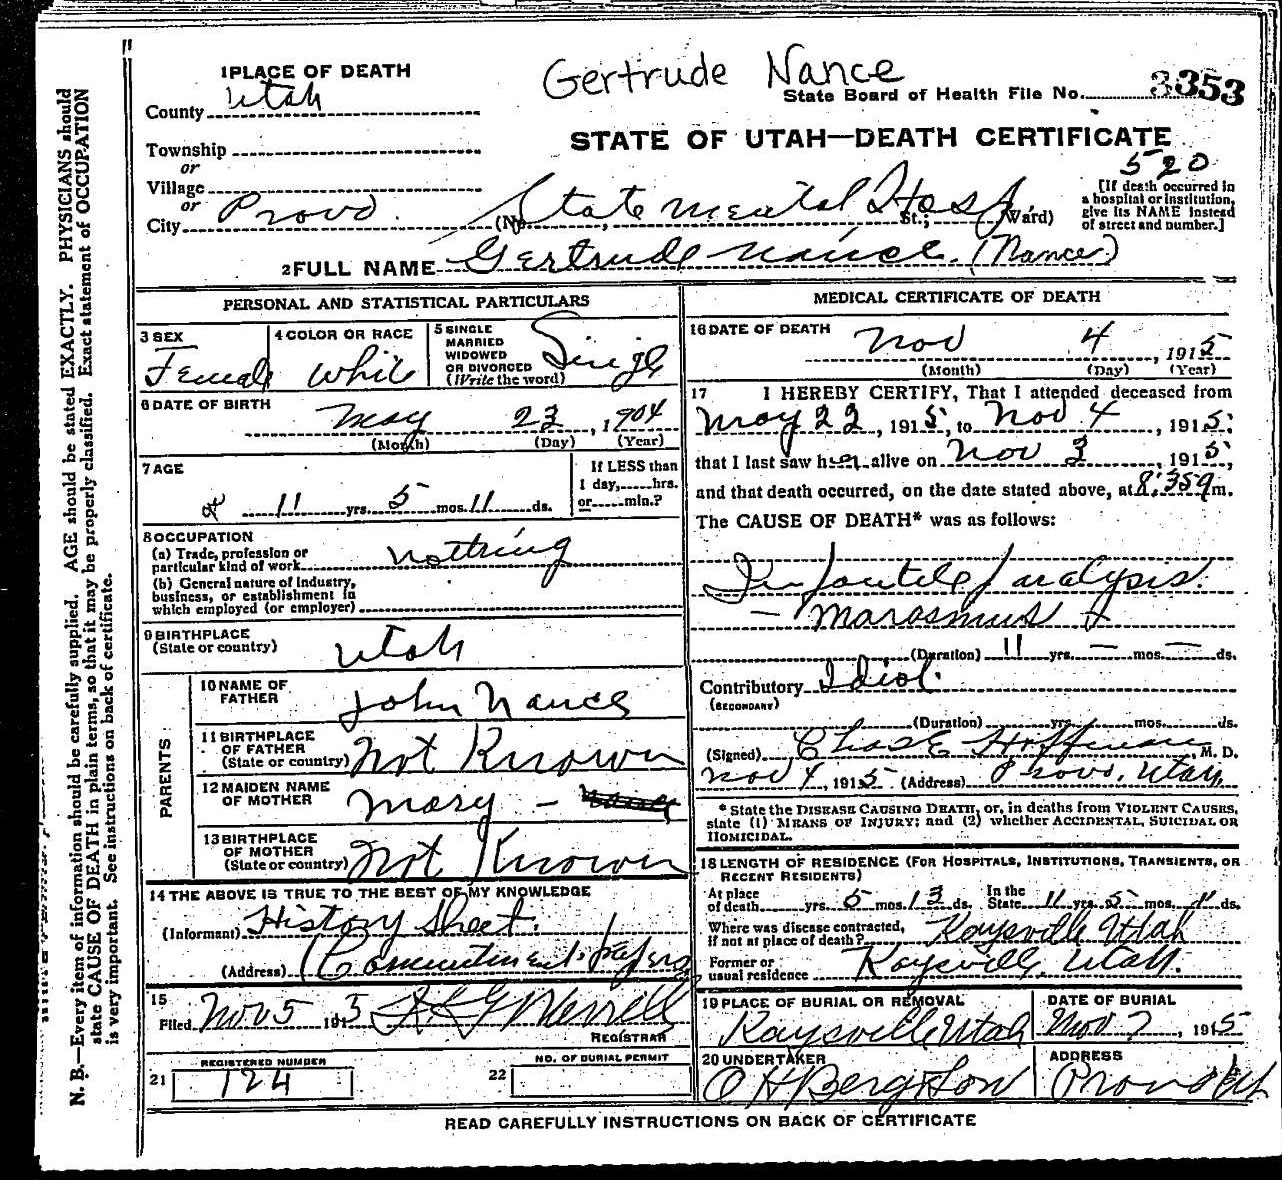 Gertrude Nance
State Board of Health File No. 3353
1 PLACE OF DEATH
County Utah
Township
or
Village
or
City Provo.
STATE OF UTAH—DEATH CERTIFICATE
520
(No State Mental Hosp. St.; Ward)
[If death occurred in
a hospital or institution,
give its NAME instead
of street and number.]
2 FULL NAME Gertrude Nance. (Nance)
PERSONAL AND STATISTICAL PARTICULARS
3 SEX
Female
4 COLOR OR RACE
White
5 SINGLE
MARRIED
WIDOWED
OR DIVORCED
(Write the word)
Single
6 DATE OF BIRTH
May 23, 1904
(Month) (Day) (Year)
7 AGE
11 yrs. 5 mos. 11 ds.
If LESS than
1 day, hrs.
or min.?
8 OCCUPATION
(a) Trade, profession or
particular kind of work nothing
(b) General nature of industry,
business, or establishment in
which employed (or employer)
9 BIRTHPLACE
(State or country) Utah
PARENTS
10 NAME OF
FATHER John Nance
11 BIRTHPLACE
OF FATHER
(State or country) Not Known
12 MAIDEN NAME
OF MOTHER Mary —
13 BIRTHPLACE
OF MOTHER
(State or country) Not Known
14 THE ABOVE IS TRUE TO THE BEST OF MY KNOWLEDGE
(Informant) History Sheet.
(Address) (Commitment papers
15
Filed Nov 5 1915 Merrell
REGISTRAR
REGISTERED NUMBER
21 124
NO. OF BURIAL PERMIT
22
MEDICAL CERTIFICATE OF DEATH
16 DATE OF DEATH
Nov 4, 1915
(Month) (Day) (Year)
17 I HEREBY CERTIFY, That I attended deceased from
May 22, 1915, to Nov 4, 1915;
that I last saw her alive on Nov 3, 1915,
and that death occurred, on the date stated above, at 8:35 a m.
The CAUSE OF DEATH* was as follows:
Infantile Paralysis.
— Marasmus
(Duration) 11 yrs. — mos. — ds.
Contributory Idiot.
(SECONDARY)
(Duration) yrs. mos. ds.
(Signed) Chas E Hoffman, M. D.
Nov 4, 1915 (Address) Provo, Utah,
* State the DISEASE CAUSING DEATH, or, in deaths from VIOLENT CAUSES,
state (1) MEANS OF INJURY; and (2) whether ACCIDENTAL, SUICIDAL OR
HOMICIDAL.
18 LENGTH OF RESIDENCE (FOR HOSPITALS, INSTITUTIONS, TRANSIENTS, OR
RECENT RESIDENTS)
At place
of death yrs. 5 mos. 13 ds.
In the
State 11 yrs. 5 mos. 11 ds.
Where was disease contracted,
if not at place of death? Kaysville Utah
Former or
usual residence Kaysville, Utah.
19 PLACE OF BURIAL OR REMOVAL
Kaysville Utah
DATE OF BURIAL
Nov 7, 1915
20 UNDERTAKER
O H Berg & Son
ADDRESS
Provo
READ CAREFULLY INSTRUCTIONS ON BACK OF CERTIFICATE
N. B.—Every item of information should be carefully supplied. AGE should be stated EXACTLY. PHYSICIANS should
state CAUSE OF DEATH in plain terms, so that it may be properly classified. Exact statement of OCCUPATION
is very important. See instructions on back of certificate.